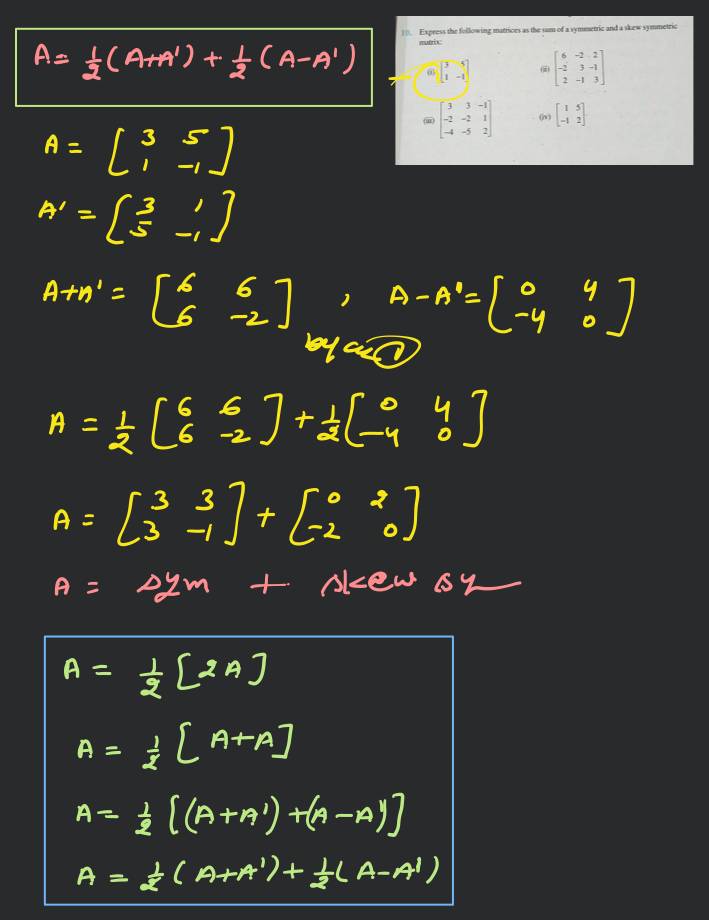 A = 1/2 (A+A') + 1/2 (A-A')
10. Express the following matrices as the sum of a symmetric and a skew symmetric
matrix:
(i) [3 5
1 -1]
(ii) [6 -2 2
-2 3 -1
2 -1 3]
(iii) [3 3 -1
-2 -2 1
-4 -5 2]
(iv) [1 5
-1 2]
A = [3 5
1 -1]
A' = [3 1
5 -1]
A+A' = [6 6
6 -2] , A-A' = [0 4
-4 0]
by
A = 1/2 [6 6
6 -2] + 1/2 [0 4
-4 0]
A = [3 3
3 -1] + [0 2
-2 0]
A = sym + skew sy
A = 1/2 [2A]
A = 1/2 [A+A]
A = 1/2 [(A+A') + (A-A')]
A = 1/2 (A+A') + 1/2 (A-A')